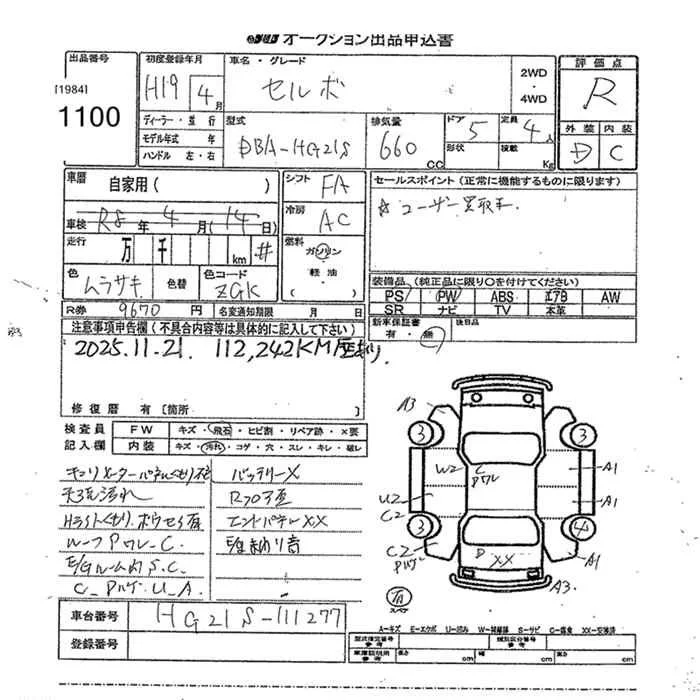 オークション出品申込書
出品番号
[1984]
1100
初度登録年月
H19 4月
車名・グレード
セルボ
2WD
・
4WD
評価点
R
外装 内装
D C
ディーラー・並行
モデル年式 年
ハンドル 左・右
型式
DBA-HG21S
排気量
660 CC
ドア 5
形状
定員 4人
積載 Kg
車歴
自家用( )
車検 R8年 4月(14日)
走行 万 千 km #
シフト FA
冷房 AC
燃料 ガソリン
軽油
( )
セールスポイント(正常に機能するものに限ります)
☆ユーザー買取車.
色 ムラサキ
色替
色コード ZGK
装備品(純正品に限り○を付けてください)
PS PW ABS エアB AW
SR ナビ TV 本革
R券 9670円
名変通知期限 月 日
新車保証書
有・無
後日品
注意事項申告欄(不具合内容等は具体的に記入して下さい)
2025.11.21. 112,242KM
修復歴 有[箇所 ]
検査員
記入欄
FW キズ・飛石・ヒビ割・リペア跡・X要
内装 キズ・汚れ・コゲ・穴・スレ・キレ・破レ
バッテリーX
エンドパネルXX
ルーフPワレ-C.
E/Gルーム内S.C.
A3
3
3
W2
U2
C2
3
C2
A1
A1
4
A1
XX
A3
A-キズ E-エクボ U-凹み W-補修跡 S-サビ C-腐食 XX-交換済
車台番号 HG21S-111277
登録番号
型式指定番号
参考
類別区分番号
参考
車庫証明用
参考
長さ cm
幅 cm
高さ cm